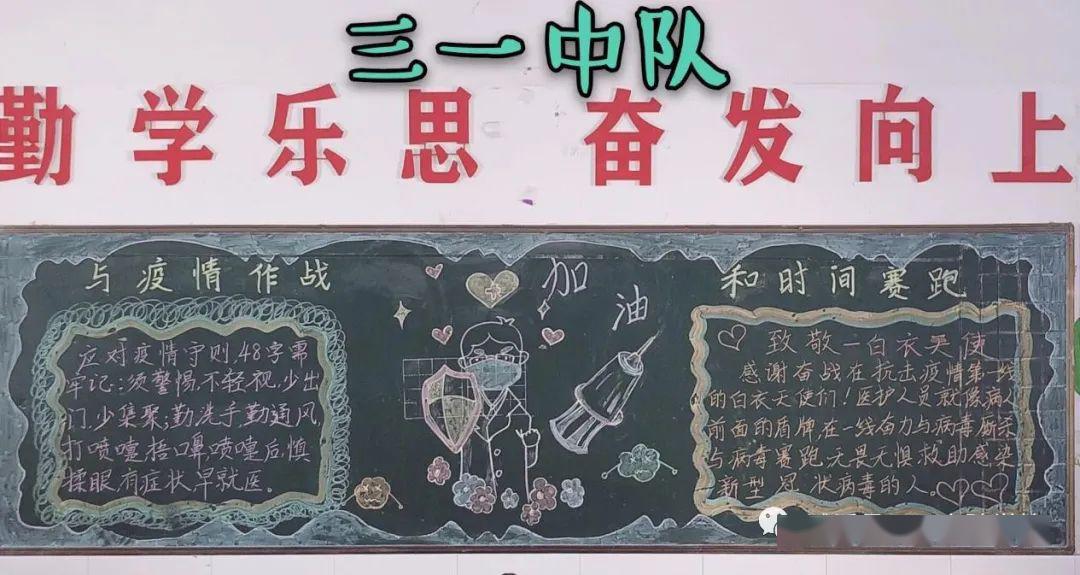 三一中队
勤学乐思 奋发向上
与疫情作战
应对疫情守则,48字需
牢记:须警惕,不轻视,少出
门,少集聚;勤洗手,勤通风,
打喷嚏,捂口鼻,喷嚏后,慎
揉眼,有症状,早就医。
加油
和时间赛跑
致敬—白衣天使
感谢奋战在抗击疫情第一线
的白衣天使们!医护人员就像病人
前面的盾牌,在一线奋力与病毒厮杀
与病毒赛跑,无畏无惧救助感染
新型冠状病毒的人。